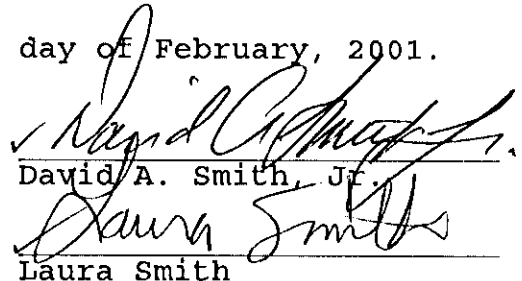 day of February, 2001.
David A Smith Jr.
David A. Smith, Jr.
Laura Smith
Laura Smith